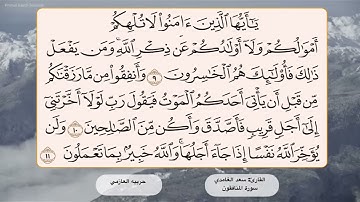 يَٰٓأَيُّهَا ٱلَّذِينَ ءَامَنُوا۟ لَا تُلْهِكُمْ
أَمْوَٰلُكُمْ وَلَآ أَوْلَٰدُكُمْ عَن ذِكْرِ ٱللَّهِ ۚ وَمَن يَفْعَلْ
ذَٰلِكَ فَأُو۟لَٰٓئِكَ هُمُ ٱلْخَٰسِرُونَ ٩ وَأَنفِقُوا۟ مِن مَّا رَزَقْنَٰكُم
مِّن قَبْلِ أَن يَأْتِىَ أَحَدَكُمُ ٱلْمَوْتُ فَيَقُولَ رَبِّ لَوْلَآ أَخَّرْتَنِىٓ
إِلَىٰٓ أَجَلٍ قَرِيبٍ فَأَصَّدَّقَ وَأَكُن مِّنَ ٱلصَّٰلِحِينَ ١٠ وَلَن
يُؤَخِّرَ ٱللَّهُ نَفْسًا إِذَا جَآءَ أَجَلُهَا ۚ وَٱللَّهُ خَبِيرٌۢ بِمَا تَعْمَلُونَ ١١
القارئ: سعد الغامدي
سورة المنافقون
حزبية الحازمي